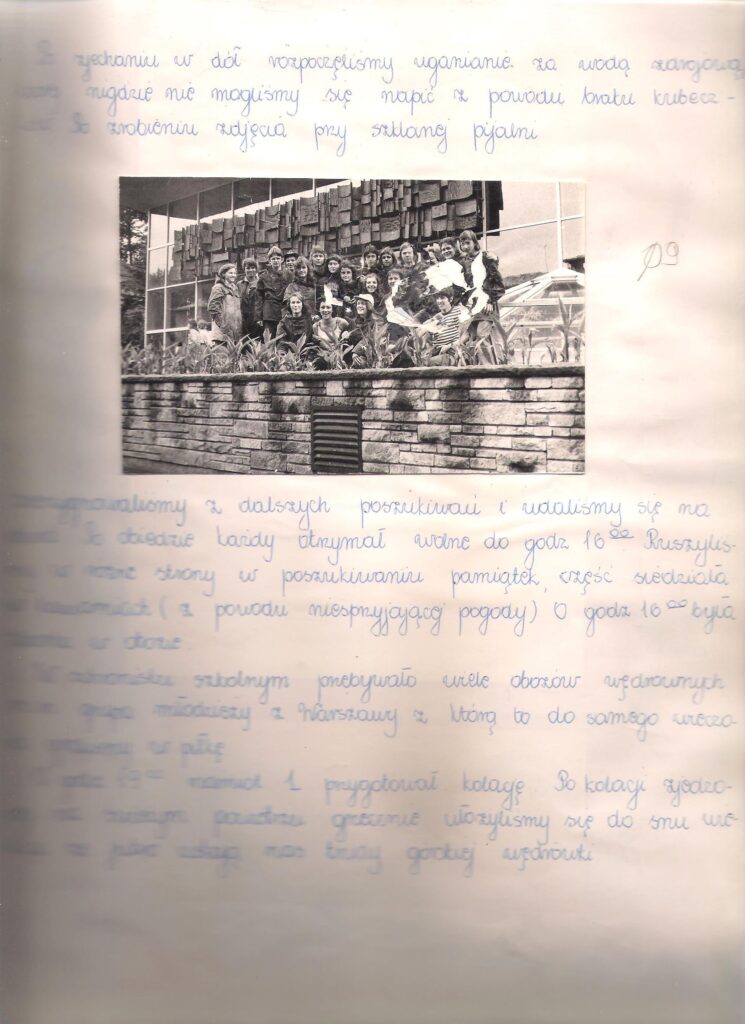 Po zjechaniu w dół rozpoczęliśmy uganianie za wodą zdrojową
nigdzie nie mogliśmy się napić z powodu braku kubecz-
Po zrobieniu zdjęcia przy szklanej pijalni
09
zrezygnowaliśmy z dalszych poszukiwań i udaliśmy się na
Po obiedzie każdy otrzymał wolne do godz 16⁰⁰ Ruszyliś-
w różne strony w poszukiwaniu pamiątek, część siedziała
w kawiarniach (z powodu niesprzyjającej pogody) O godz 16⁰⁰ była
w obozie.
W schronisku szkolnym przebywało wiele obozów wędrownych
grupa młodzieży z Warszawy z którą to do samego wieczo-
w piłkę
19⁰⁰ namiot 1 przygotował kolację. Po kolacji zjedzo-
na świeżym powietrzu grzecznie ułożyliśmy się do snu
że jutro czekają nas trudy górskiej wędrówki